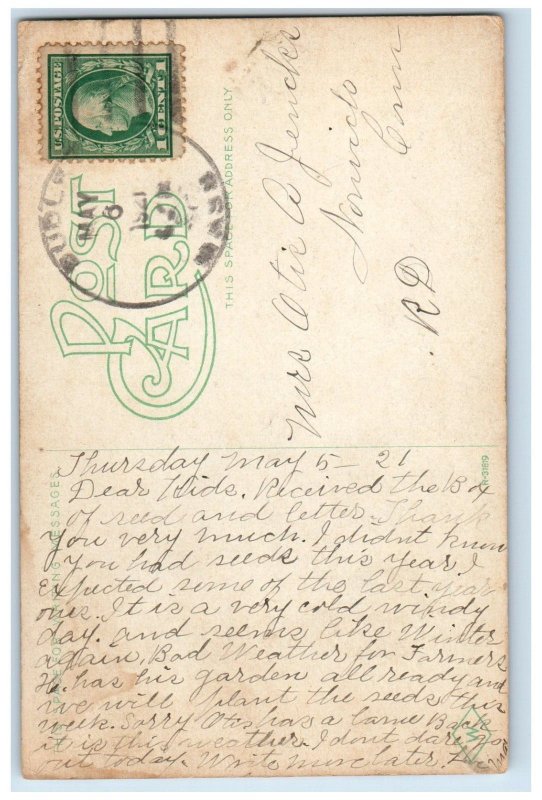 U.S. POSTAGE
1 CENT 1
MAY
6
MASS
POST
CARD
THIS SPACE FOR ADDRESS ONLY.
Mrs Otis A Jencks
Norwich
Conn
R D
MESSAGES
R-31819
Thursday May 5 - 21
Dear Kids. Received the Box
of seed and letter. Thank
you very much. I didnt know
you had seeds this year I
expected some of the last year
ones. It is a very cold windy
day. and seems like Winter
again. Bad Weather for Farmers
He has his garden all ready and
we will plant the seeds this
week. Sorry Otis has a lame Back
it is this weather. I dont dare go
out today. Write more later.
W